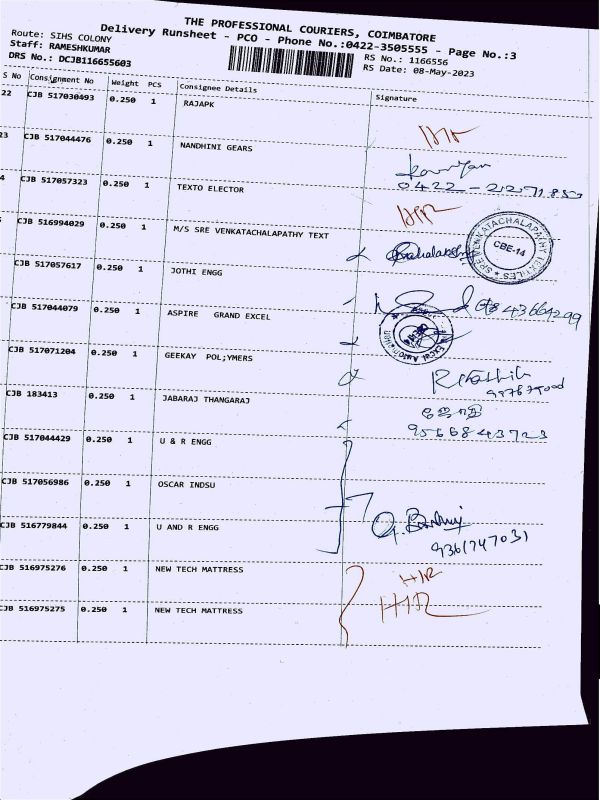 THE PROFESSIONAL COURIERS, COIMBATORE
Delivery Runsheet - PCO - Phone No.:0422-3505555 - Page No.:3
Route: SIHS COLONY
Staff: RAMESHKUMAR
DRS No.: DCJB116655603
RS No.: 1166556
RS Date: 08-May-2023
S No Consignment No Weight PCS Consignee Details Signature
22 CJB 517030493 0.250 1 RAJAPK
23 CJB 517044476 0.250 1 NANDHINI GEARS
4 CJB 517057323 0.250 1 TEXTO ELECTOR
CJB 516994029 0.250 1 M/S SRE VENKATACHALAPATHY TEXT
SREE VENKATACHALAPATHY TEXTILES
CBE-14
CJB 517057617 0.250 1 JOTHI ENGG
CJB 517044079 0.250 1 ASPIRE GRAND EXCEL
CJB 517071204 0.250 1 GEEKAY POL;YMERS
CJB 183413 0.250 1 JABARAJ THANGARAJ
9566843723
CJB 517044429 0.250 1 U & R ENGG
CJB 517056986 0.250 1 OSCAR INDSU
CJB 516779844 0.250 1 U AND R ENGG
9361747031
CJB 516975276 0.250 1 NEW TECH MATTRESS
CJB 516975275 0.250 1 NEW TECH MATTRESS